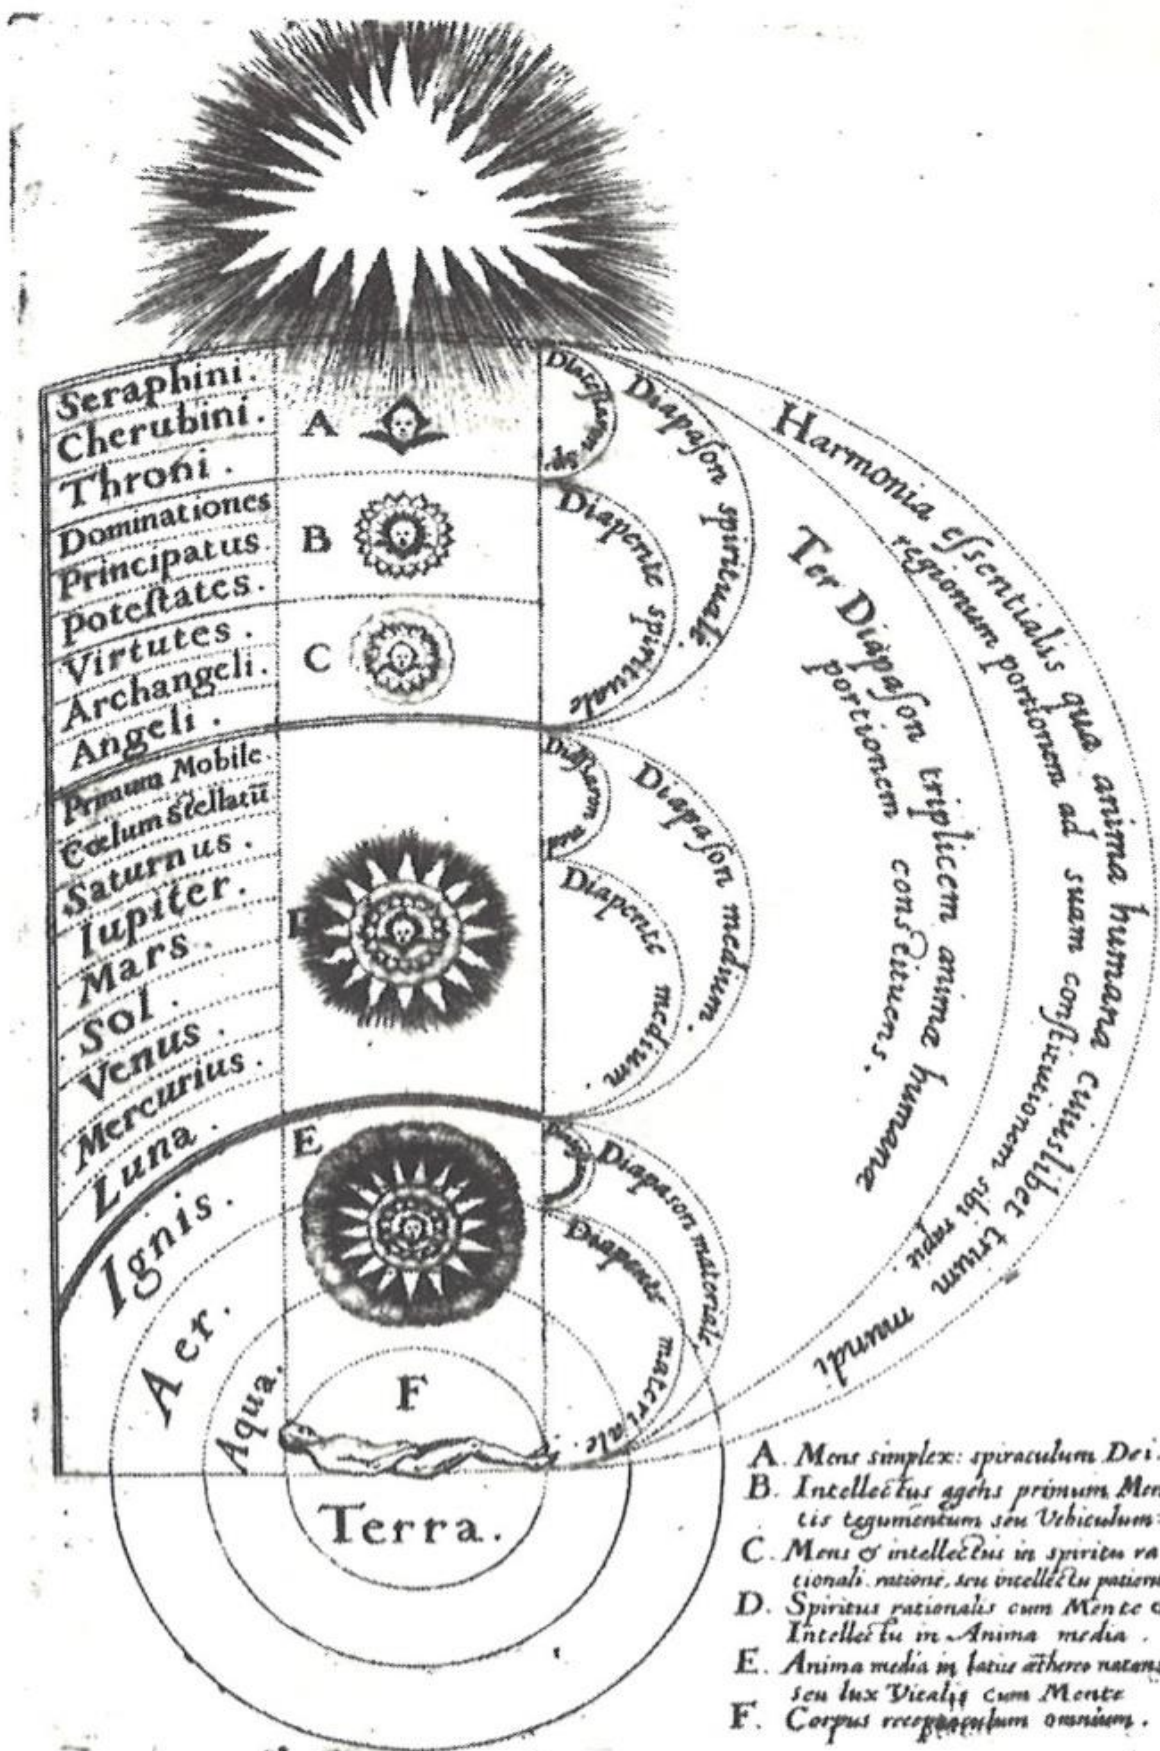 Seraphini.
Cherubini.
Throni.
Dominationes
Principatus.
Poteſtates.
Virtutes.
Archangeli.
Angeli.
Primum Mobile.
Cœlum Stellatũ
Saturnus.
Iupiter.
Mars.
Sol.
Venus.
Mercurius.
Luna.
Ignis.
Aer.
Aqua.
Terra.
A
B
C
E
F
Diapaſon spirituale.
Diapente spirituale
Diapaſon medium.
Diapente medium.
Diapason materiale
Diapente materiale.
Ter Diapaſon triplicem animæ humanæ
portionem constituens.
Harmonia eſsentialis qua anima humana cuiuslibet trium
regionum portionem ad suam conſtitutionem sibi rapit.
mundi
A. Mens simplex: spiraculum Dei.
B. Intellectus agens primum Men
tis tegumentum seu Vehiculum
C. Mens & intellectus in spiritu ra
tionali. ratione, seu intellectu patien
D. Spiritus rationalis cum Mente &
Intellectu in Anima media.
E. Anima media in latice æthereo natans
seu lux Vitalis cum Mente
F. Corpus receptaculum omnium.